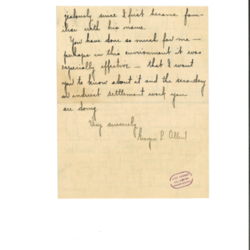 jealously since I first became fam-
iliar with his name.
You have done so much for me —
perhaps in this environment it was
especially effective — that I want
you to know about it and the secondary
or indirect settlement work you
are doing.
Very sincerely,